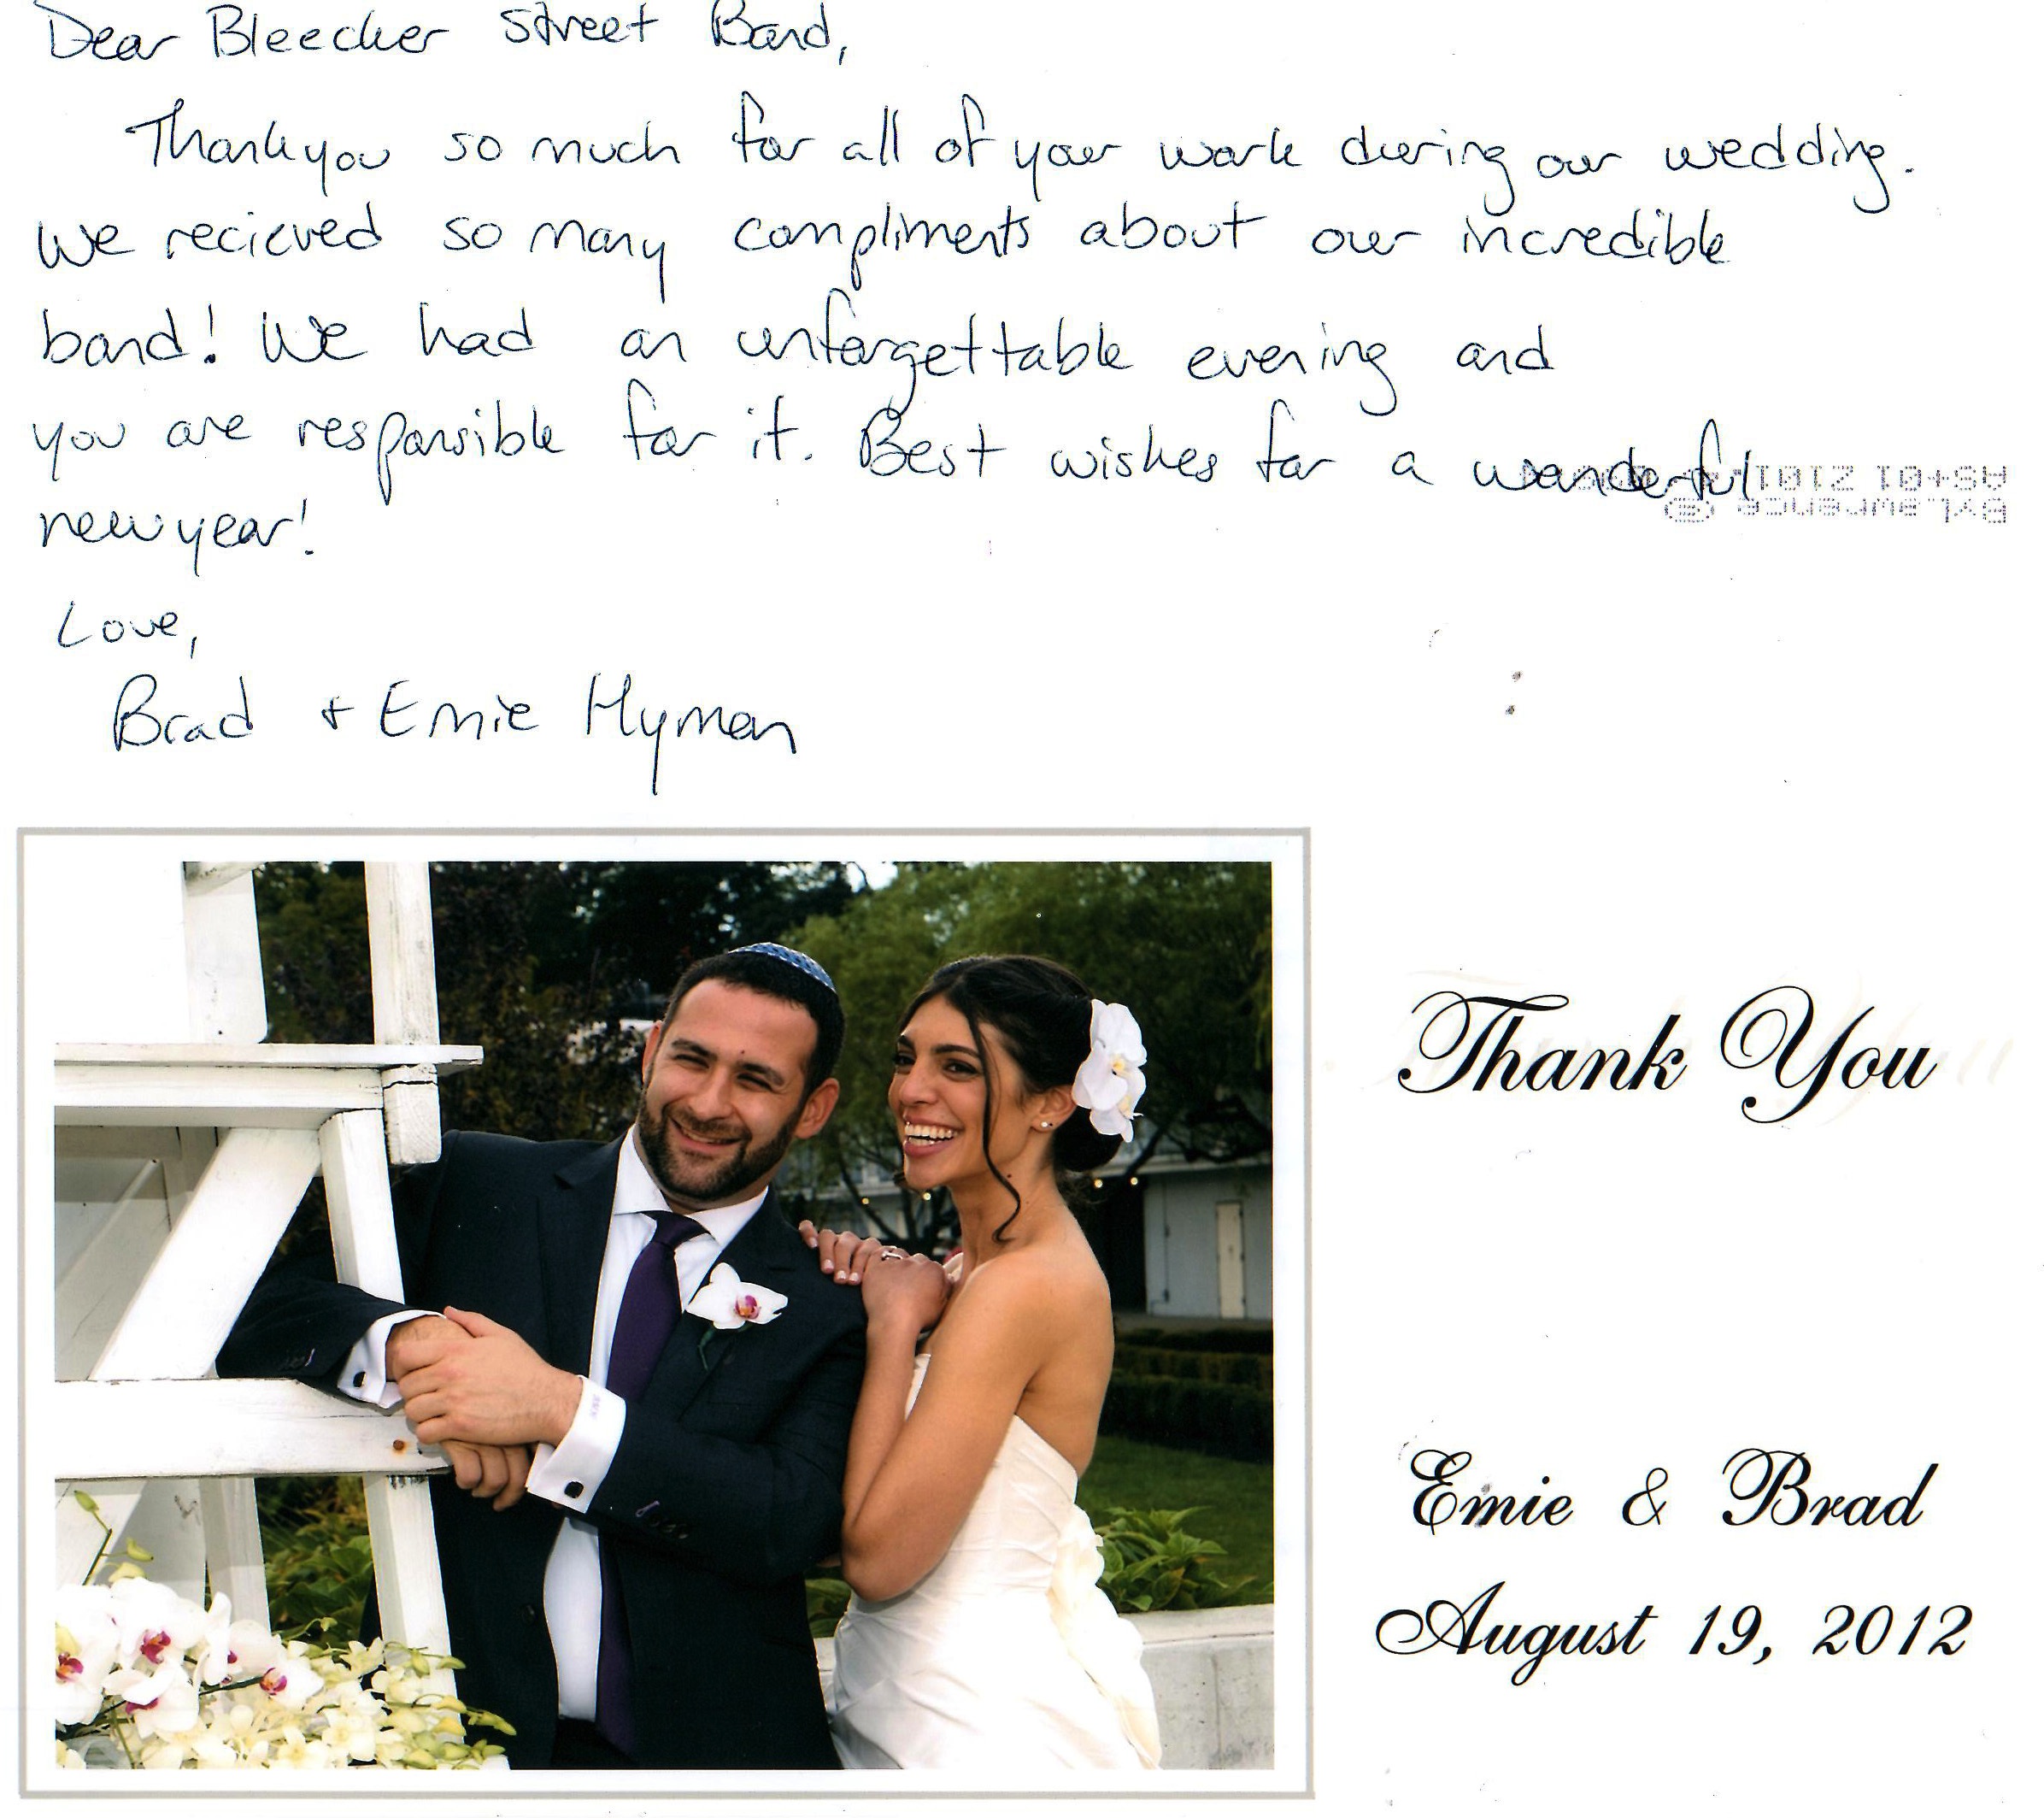 Dear Bleecker Street Band,
Thank you so much for all of your work during our wedding.
We recieved so many compliments about our incredible
band! We had an unforgettable evening and
you are responsible for it. Best wishes for a wonderful
new year!
Love,
Brad + Emie Hyman
Thank You
Emie & Brad
August 19, 2012